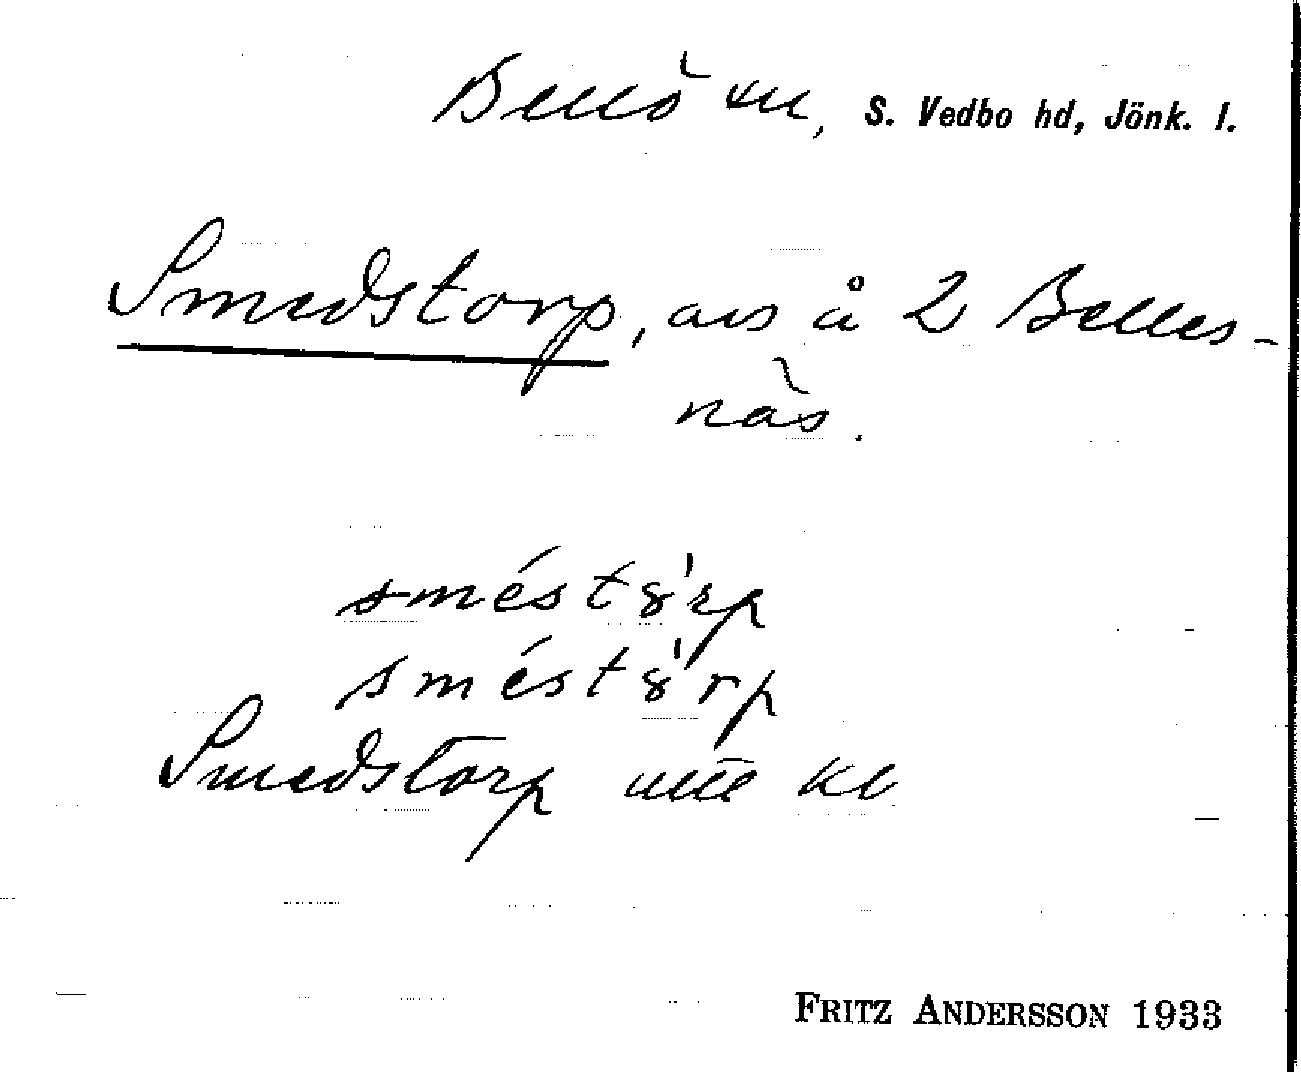 Bellö sn, S. Vedbo hd, Jönk. l.
Smedstorp, avs å 2 Belles-
näs.
sméstȣ̍rp
sméstȣ̍rp
Smedstorp
FRITZ ANDERSSON 1933